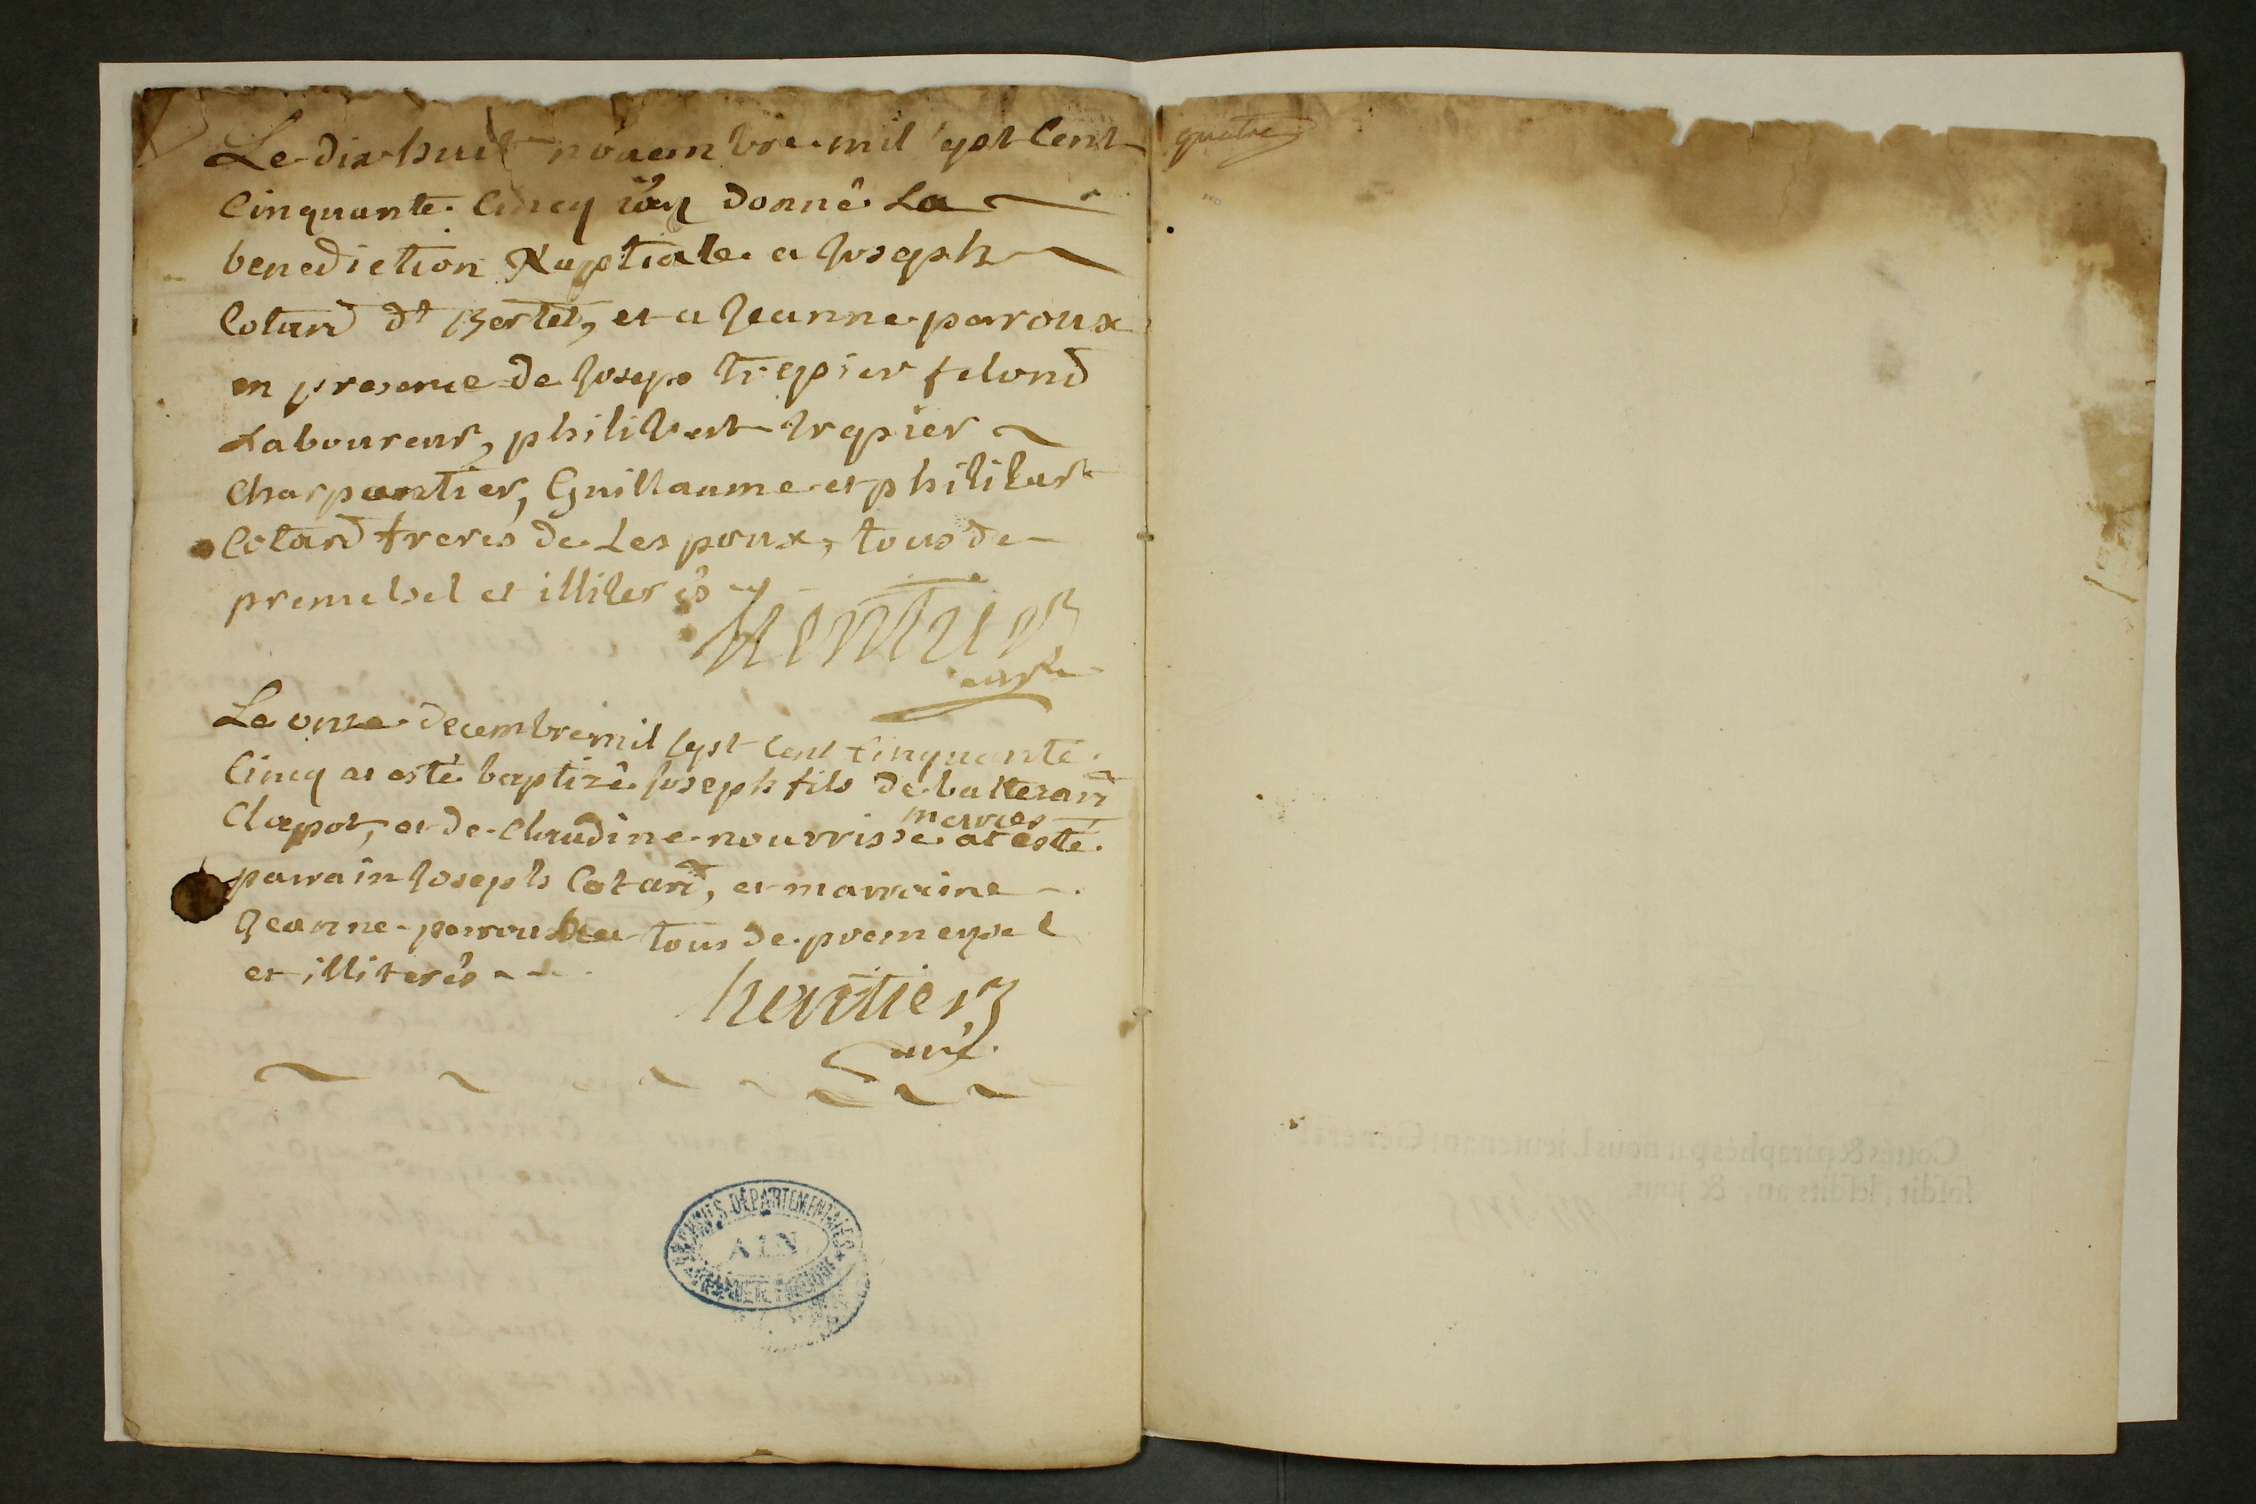 Le dix huit novembre mil sept Cent
Cinquante Cincq iay donné La
benediction Nuptiale a Joseph
Cotard dt Bertet, et a Jeanne paroux
en presence de Joseph trepier felond
Laboureur, philibert trepier
Charpantier, Guillaume et philibert
Cotard freres de Lespoux, tous de
premelsel et illiterés
curé
Le onze decembre mil sept Cent Cinquante
Cincq at esté baptizé Joseph fils de baltezard
Clapot, et de Claudine nourrisse at esté
parrain Joseph Cotard, et marraine
Jeanne tous de premeysel
et illiterés
curé
quatre
ARCHIVES DÉPARTEMENTALES
AIN
Cottés & paraphés par nous Lieutenant Général
susdit, lesdits an, & jour